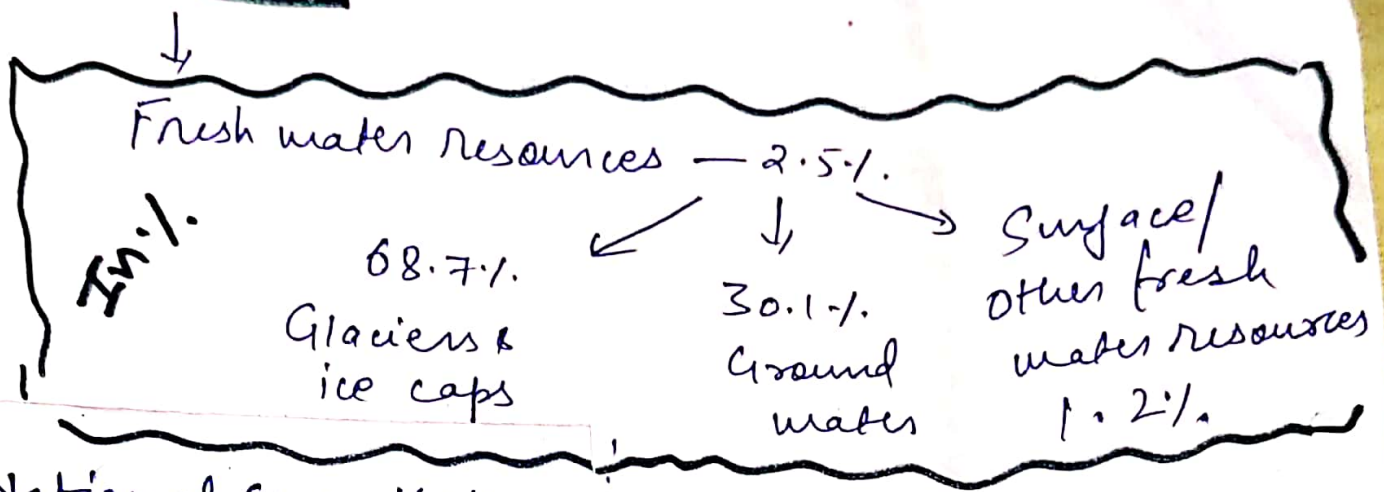 Fresh water resources — 2.5%.
In %.
68.7%.
Glaciers &
ice caps
30.1%.
Ground
water
Surface/
other fresh
water resources
1.2%.